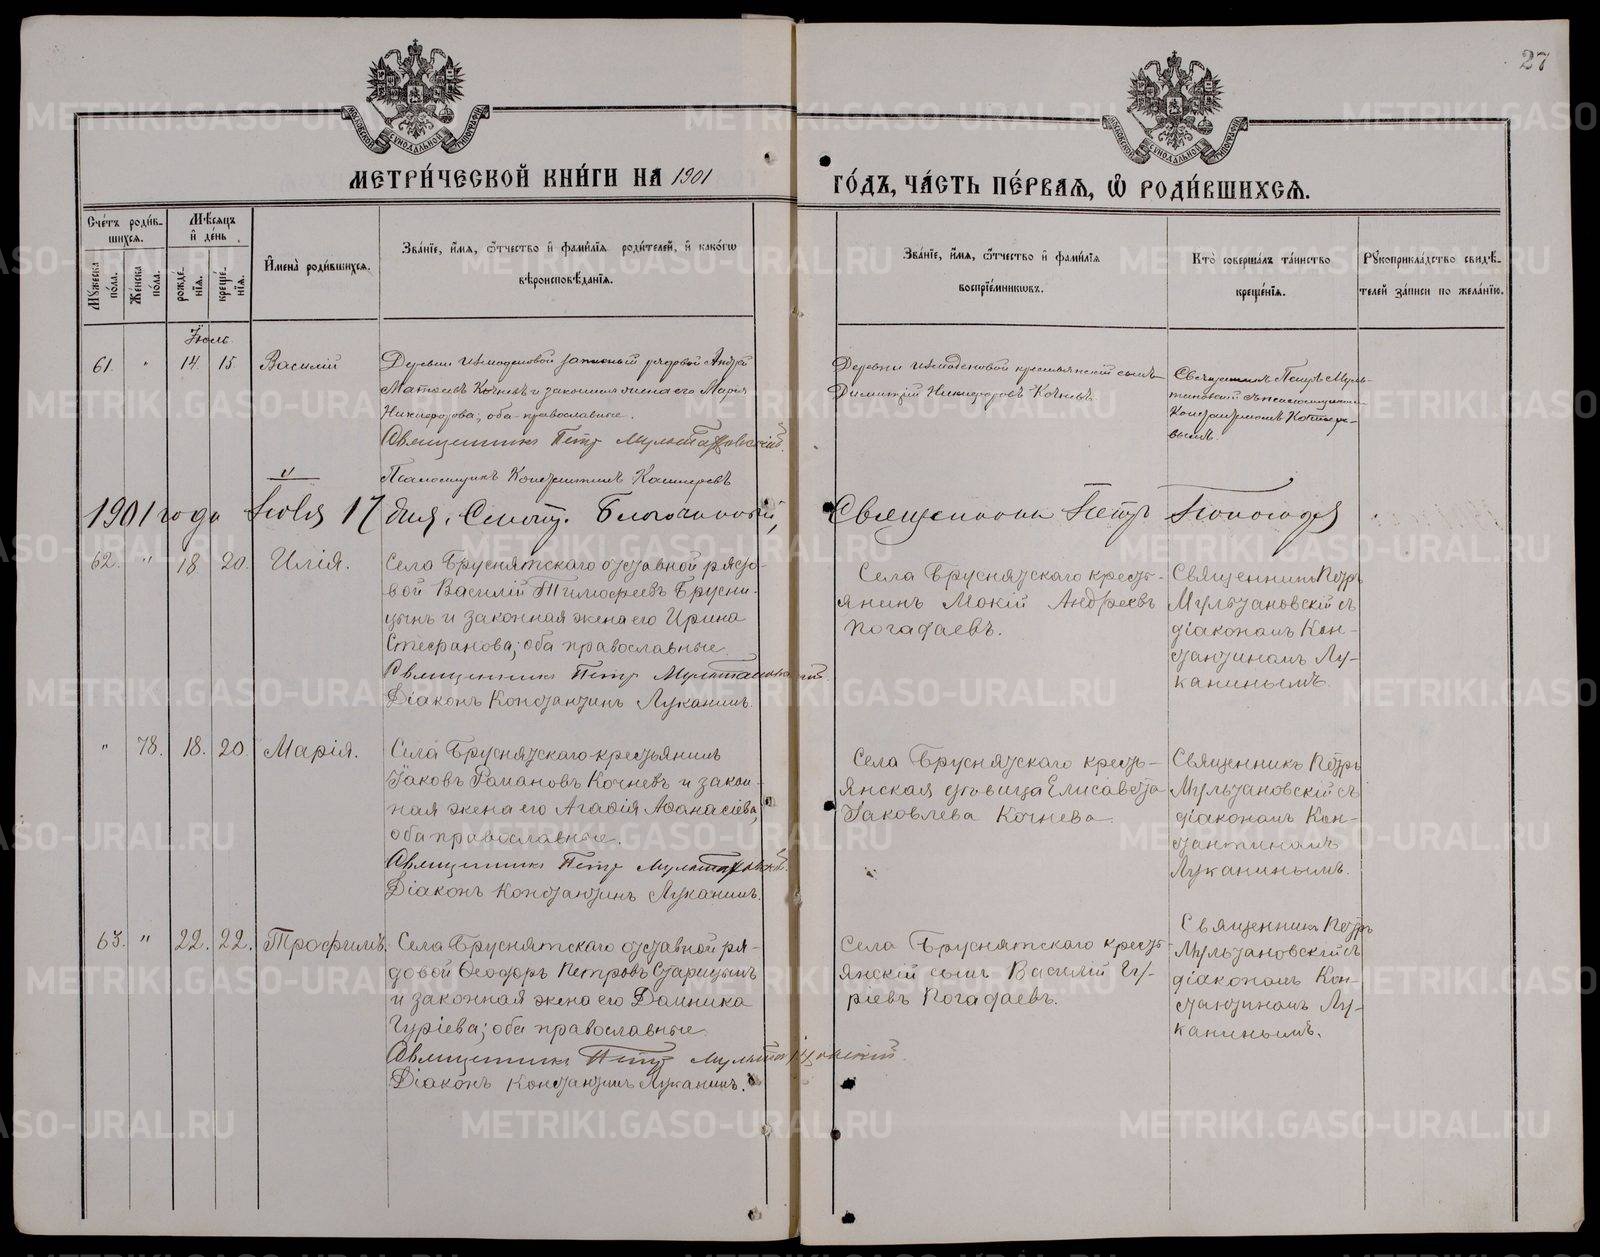 27
МОСКОВСКОЙ СѴНОДАЛЬНОЙ ТИПОГРАФІИ
МОСКОВСКОЙ СѴНОДАЛЬНОЙ ТИПОГРАФІИ
МЕТРИ́ЧЕСКОЙ КНИ́ГИ НА 1901
ГО́ДЪ, ЧА́СТЬ ПЕ́РВАЯ, Ѡ РОДИ́ВШИХСЯ.
Сче́тъ роди́в-
шихся.
Мѣ́сяцъ
и́ де́нь
Му́жеска
по́ла.
Же́нска
по́ла.
рожде-
нїя.
креще-
нїя.
И҆мена̀ роди́вшихся.
Зва́нїе, и҆́мя, ѻ҆́тчество и҆ фами́лїя роди́телей, и҆ како́гѡ
вѣроисповѣ́данїя.
Зва́нїе, и҆́мя, ѻ҆́тчество и҆ фами́лїя
воспрїе́мникѡвъ.
Кто̀ соверша́лъ та́инство
креще́нїя.
Рꙋкоприкла́дство свидѣ́-
телей за́писи по жела́нїю.
Іюль
61. " 14 15 Василій
Деревни Измоденовой запасный рядовой Андрей
Матвеевъ Кочневъ и законная жена его Марія
Никифорова; оба православные.
Священникъ Петръ Мультановскій.
Псаломщикъ Константинъ Кашперевъ
Деревни Измоденовой крестьянскій сынъ
Димитрій Никифоровъ Кочневъ
Священникъ Петръ Муль-
тановскій съ псаломщикомъ
Константиномъ Кашпере-
вымъ.
1901 года Іюля 17 дня, Смотр. Благочинный,
Священникъ Петръ
62. " 18 20. Илія.
Села Бруснятскаго отставной рядо-
вой Василій Тимофеевъ Брусни-
цынъ и законная жена его Ирина
Стефанова; оба православные.
Священникъ Петръ Мультановскій.
Діаконъ Константинъ Луканинъ.
Села Бруснятскаго кресть-
янинъ Мокій Андреевъ
Погадаевъ.
Священникъ Петръ
Мультановскій съ
діакономъ Кон-
стантиномъ Лу-
канинымъ.
" 78. 18. 20. Марія.
Села Бруснятскаго крестьянинъ
Іаковъ Романовъ Кочневъ и закон-
ная жена его Агафія Аѳанасіева;
оба православные.
Священникъ Петръ Мультановскій.
Діаконъ Константинъ Луканинъ.
Села Бруснятскаго кресть-
янская дѣвица Елисавета
Іаковлева Кочнева.
Священникъ Петръ
Мультановскій съ
діакономъ Кон-
стантиномъ
Луканинымъ.
63. " 22. 22. Трофимъ.
Села Бруснятскаго отставной ря-
довой Ѳеодоръ Петровъ Старицынъ
и законная жена его Домника
Гуріева; оба православные.
Священникъ Петръ Мультановскій.
Діаконъ Константинъ Луканинъ.
Села Бруснятскаго кресть-
янскій сынъ Василій Гу-
ріевъ Погадаевъ.
Священникъ Петръ
Мультановскій съ
діакономъ Кон-
стантиномъ Лу-
канинымъ.
METRIKI.GASO-URAL.RU